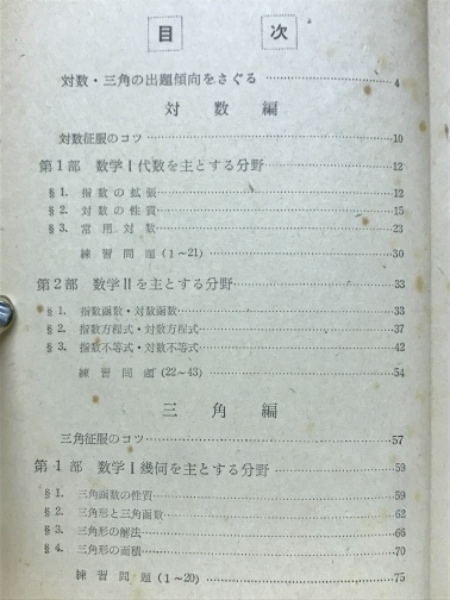 目 次
対数・三角の出題傾向をさぐる ……………………4
対 数 編
対数征服のコツ ……………………10
第1部 数学Ⅰ代数を主とする分野 ……………………12
§1. 指数の拡張 ……………………12
§2. 対数の性質 ……………………15
§3. 常用対数 ……………………23
練習問題 (1~21) ……………………30
第2部 数学Ⅱを主とする分野 ……………………33
§1. 指数函数・対数函数 ……………………33
§2. 指数方程式・対数方程式 ……………………37
§3. 指数不等式・対数不等式 ……………………42
練習問題 (22~43) ……………………54
三 角 編
三角征服のコツ ……………………57
第1部 数学Ⅰ幾何を主とする分野 ……………………59
§1. 三角函数の性質 ……………………59
§2. 三角形と三角函数 ……………………62
§3. 三角形の解法 ……………………66
§4. 三角形の面積 ……………………70
練習問題 (1~20) ……………………75